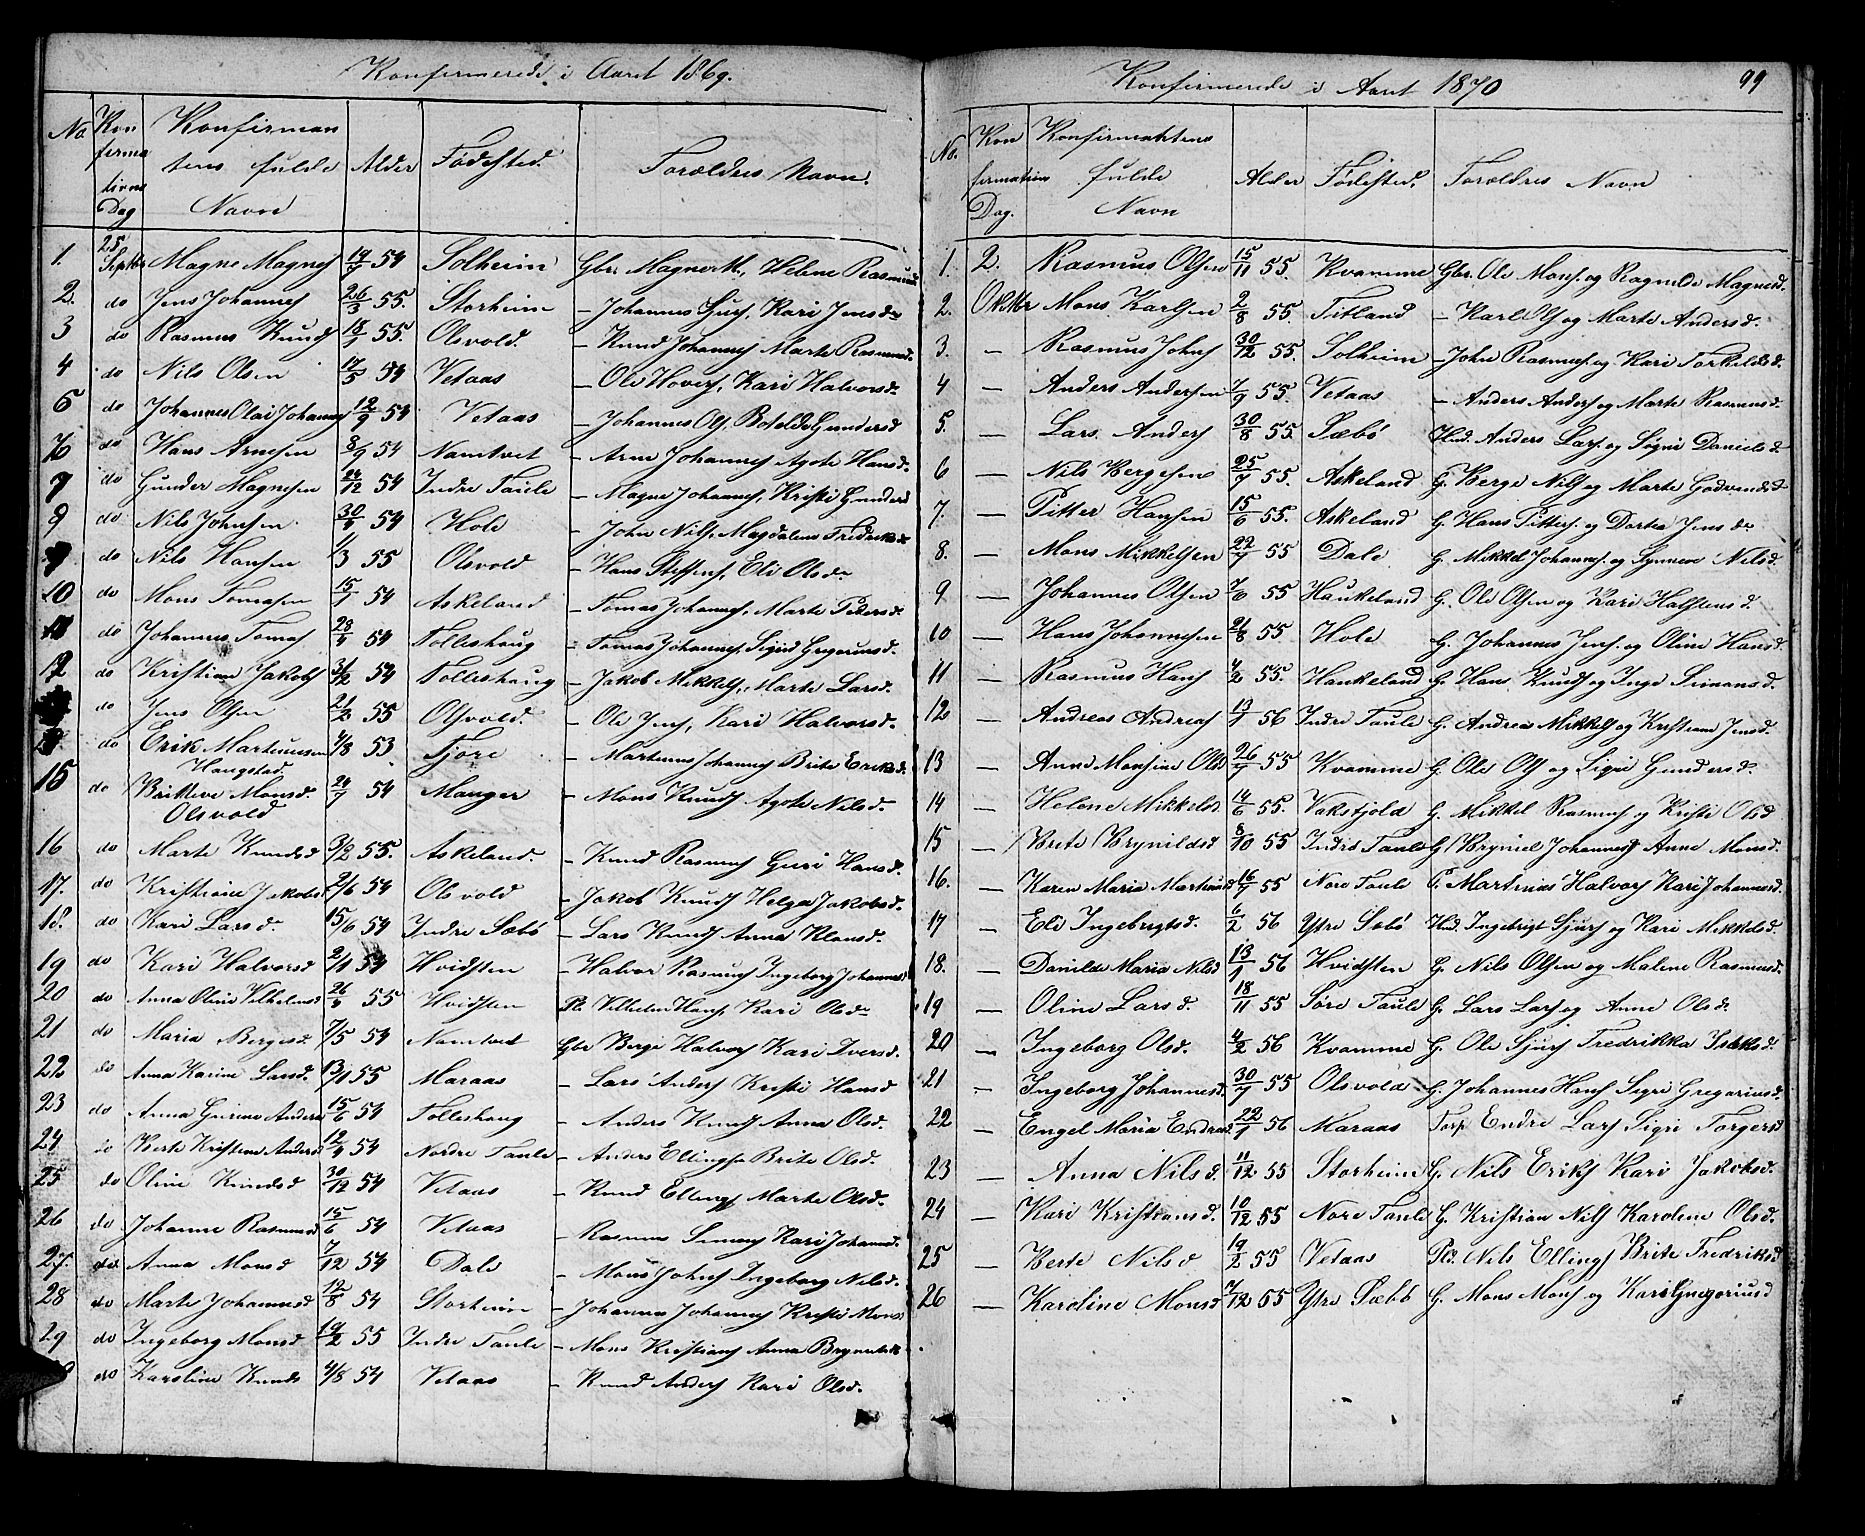 Konfirmerede i Aaret 1869.
No Konfirmations Dag Konfirmantens fulde Navn Alder Fødested. Forældres Navn.
1. 25 Septbr Magne Magnes 19/7 54 Solheim Gbr. Magne M., Helene Rasmusd
2. do Jens Johannes 26/3 55. Storheim – Johannes Gurs, Kari Jensd
3 do Rasmus Knuds 18/1 55. Olsvold. – Knud Johannes Marte Rasmusd.
4 do Nils Olsen 17/5 54 Vetaas – Ole Hovers, Kari Halvorsd.
5 do Johannes Olai Johannes 12/9 54 Vetaas – Johannes Ols, Botilde Gundersd
6 do Hans Arnesen 8/9 54 Namtvet – Arne Johannes Agote Hansd.
7 do Gunder Magnesen 24/12 54 Indre Taule – Magne Johannes, Kristi Gundersd
do Nils Johnsen 30/9 54 Hole – John Nils, Magdalene Fredriksd
do Nils Hansen 1/3 55 Olsvold – Hans Steffens, Eli Olsd.
10 do Mons Tomasen 15/1 54 Askeland – Tomas Johannes, Marte Pedersd.
do Johannes Tomas 28/9 54 Solleshaug – Tomas Johannes, Sigrid Gregoriusd.
12 do Kristian Jakobs 3/2 54 Tolleshaug – Jakob Mikkels, Marte Larsd.
do Jens Olsen 2/2 55 Olsvold. – Ole Jens, Kari Halvorsd.
do Erik Martinusen Haugstad 4/8 53 Fjore – Martinus Johannes Brite Eriksd.
15 do Britteve Monsd. Olsvold 24/7 54 Manger – Mons Knuds Agote Nilsd.
16 do Marte Knudsd 3/2 55. Askeland. – Knud Rasmus Guri Hansd.
17. do Kristine Jakobsd 2/6 54 Olsvold – Jakob Knuds Helga Jakobsd.
18. do Kari Larsd. 15/6 54 Indre Sæbø – Lars Knuds Anna Klausd.
19 do Kari Halvorsd 2/1 54 Hvidsten – Halvor Rasmus Ingeborg Johannesd
20 do Anna Oline Vilhelmsd 26/2 55 Hvidsten Pl. Vilhelm Hans, Kari Olsd.
21 do Maria Bergesd 7/5 54 Namtvet Gbr Berge Halvors Kari Iversd.
22 do Anna Karine Larsd. 13/1 55 Maraas – Lars Anders Kristi Hansd
23 do Anna Gurine Andersd 15/6 54 Tolleshaug – Anders Knuds Anna Olsd.
24 do Berte Kristine Andersd 12/9 54 Nordre Taule – Anders Ellings Brite Olsd.
25 do Oline Knudsd 30/12 54 Vetaas – Knud Ellings Marte Olsd.
26 do Johanne Rasmusd 15/6 54 Vetaas – Rasmus Simens Kari Johannesd.
27. do Anna Monsd 7/12 54 Dale – Mons Johns Ingeborg Nilsd.
28 do Marte Johannesd 12/8 54 Storheim – Johannes Johannes Kristi Mons
29 do Ingeborg Monsd 19/2 55 Indre Taule – Mons Kristians Anna Brynilds
do Karoline Knuds 4/8 54 Vetaas – Knud Anders Kari Olsd.
Konfirmerede i Aaret 1870 99
No. Konfirmations Dag. Konfirmantens fulde Navn Alder Fødested. Forældres Navn
1. 2. Rasmus Olsen 15/11 55. Kvamme Gbr. Ole Mons. og Ragnilde Magnesd.
2. Oktbr Mons Karlsen 2/8 55. Titland – Karl Ols og Marte Andersd.
3. – Rasmus Johns 30/12 55. Solheim – John Rasmus. og Kari Torkildsd.
4 – Anders Andersen 7/9 55. Vetaas – Anders Anders og Marte Rasmusd.
5. – Lars Anders 30/8 55. Sæbö Hud. Anders Lars. og Søgni Danielsd.
6 – Nils Bergesen 25/7 55. Askeland G. Berge Nils og Marte Godvendsd
7. – Pitter Hansen 15/6 55. Askeland G. Hans Pitters. og Dortea Jensd.
8. – Mons Mikkelsen 22/7 55 Dale G. Mikkel Johannes. og Synneve Nilsd.
9 – Johannes Olsen 7/6 55 Haukeland G. Ole Olsen og Kari Halstensd.
10 – Hans Johannesen 21/8 55 Hole G. Johannes Jens. og Oline Hansd.
11 – Rasmus Hans 4/2 55. Haukeland G. Hans Knuds og Inge Simonsd.
12 – Andreas Andreas 13/1 56 Indre Taule G. Andrea Mikkels og Kristiane Jensd.
13 – Anne Monsine Olsd 26/7 55 Kvamme G. Ole Ols og Sigri Gundersd.
14 – Helene Mikkelsd 14/6 55. Vakskjold G. Mikkel Rasmus og Kriste Olsd
15 – Brite Brynildsd 8/10 55 Indre Taule G Bryniel Johannes Anne Monsd.
16. – Karen Maria Martinusd 16/7 55 Nore Taule P. Martinius Halvors Kari Johannesd.
17 – Eli Ingebrigtsd. 6/2 56 Ytre Sæbö Hud. Ingebrigt Sjurs og Kari Mikkelsd.
18. – Danilde Maria Nilsd 13/1 56 Hvidsten G. Nils Olsen og Malene Rasmusd.
19 – Oline Larsd. 18/11 55 Søre Taule G. Lars Lars og Anne Olsd.
20 – Ingeborg Olsd. 4/2 56 Kvamme G. Ole Sjurs Fredrikka Isaksd.
21 – Ingeborg Johannesd. 30/7 55 Olsvold G. Johannes Hans Sigri Gregoriusd.
22 – Engel Maria Endresd 22/1 56 Maraas Torp Endre Lars Sigri Torgersd
23 – Anna Nilsd. 11/12 55 Storheim G. Nils Eriks Kari Jakobsd.
24 – Kari Kristiansd. 10/12 55 Nore Taule G. Kristian Nils Karoline Olsd.
25 – Berte Nilsd 19/2 55 Vetaas Pl. Nils Ellings Brite Fredriksd
26 – Karoline Monsd 7/12 55 Ytre Sæbö G. Mons Mons og Kari Gregoriusd